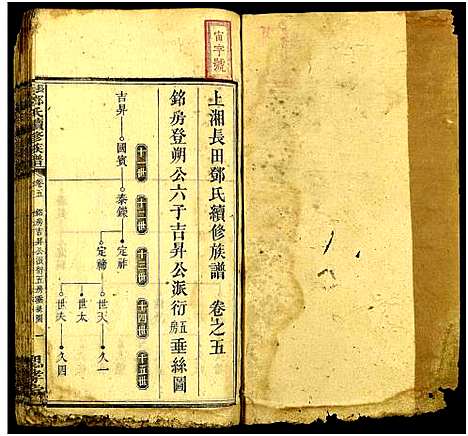 宙字號
上湘長田鄧氏續修族譜 卷之五
銘房登朔公六子吉昇公派衍五房垂絲圖
十一世
十二世
十三世
十四世
十五世
吉昇
國賓
泰鑅
定祚
定禘
世太
世夫
久一
久四
鄧氏續修族譜
卷五
銘房吉昇公派衍五房垂絲圖
一